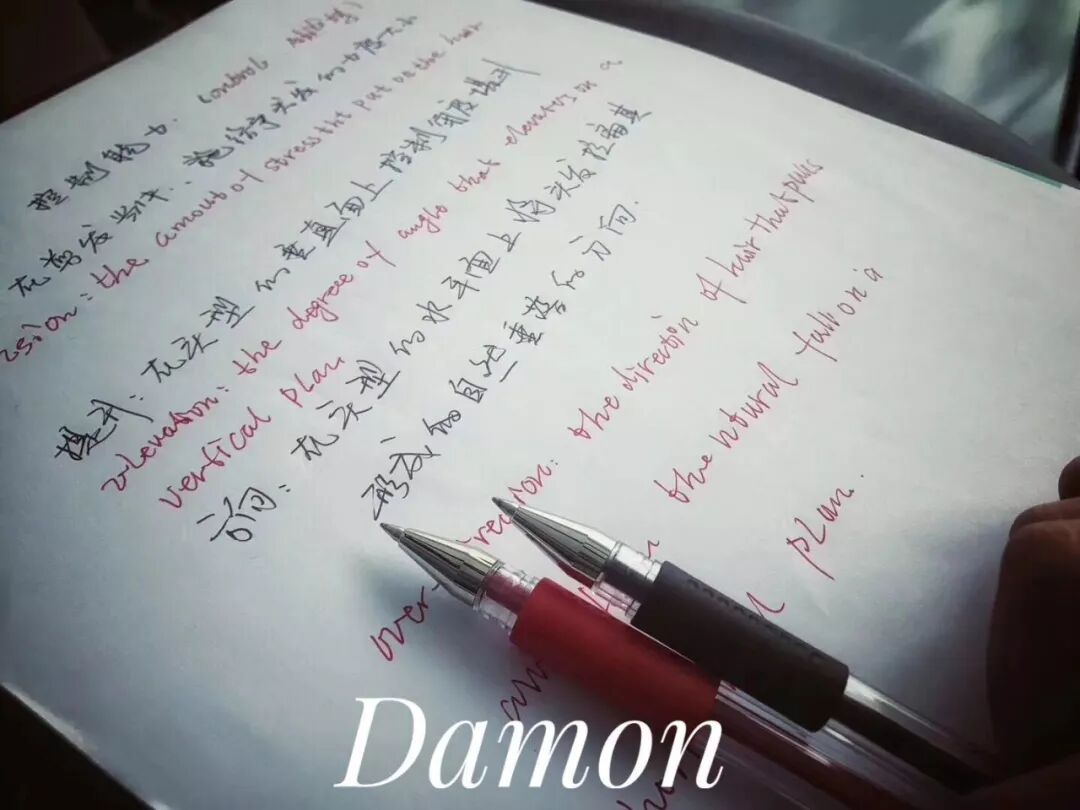 控制能力. control
在剪发当中, 施给予头发的力度大小
nsion: the amout of stress tht put on the hair
提升: 在头型的垂直面上控制角度提升
elevation: the degree of anglo that elevates on a
vertical plan.
方向: 在头型的水平面上将头发拉离其
形成的自然垂落的方向.
over- rection: the direction of hair that pulls
the natural fall on a
plan.
Damon